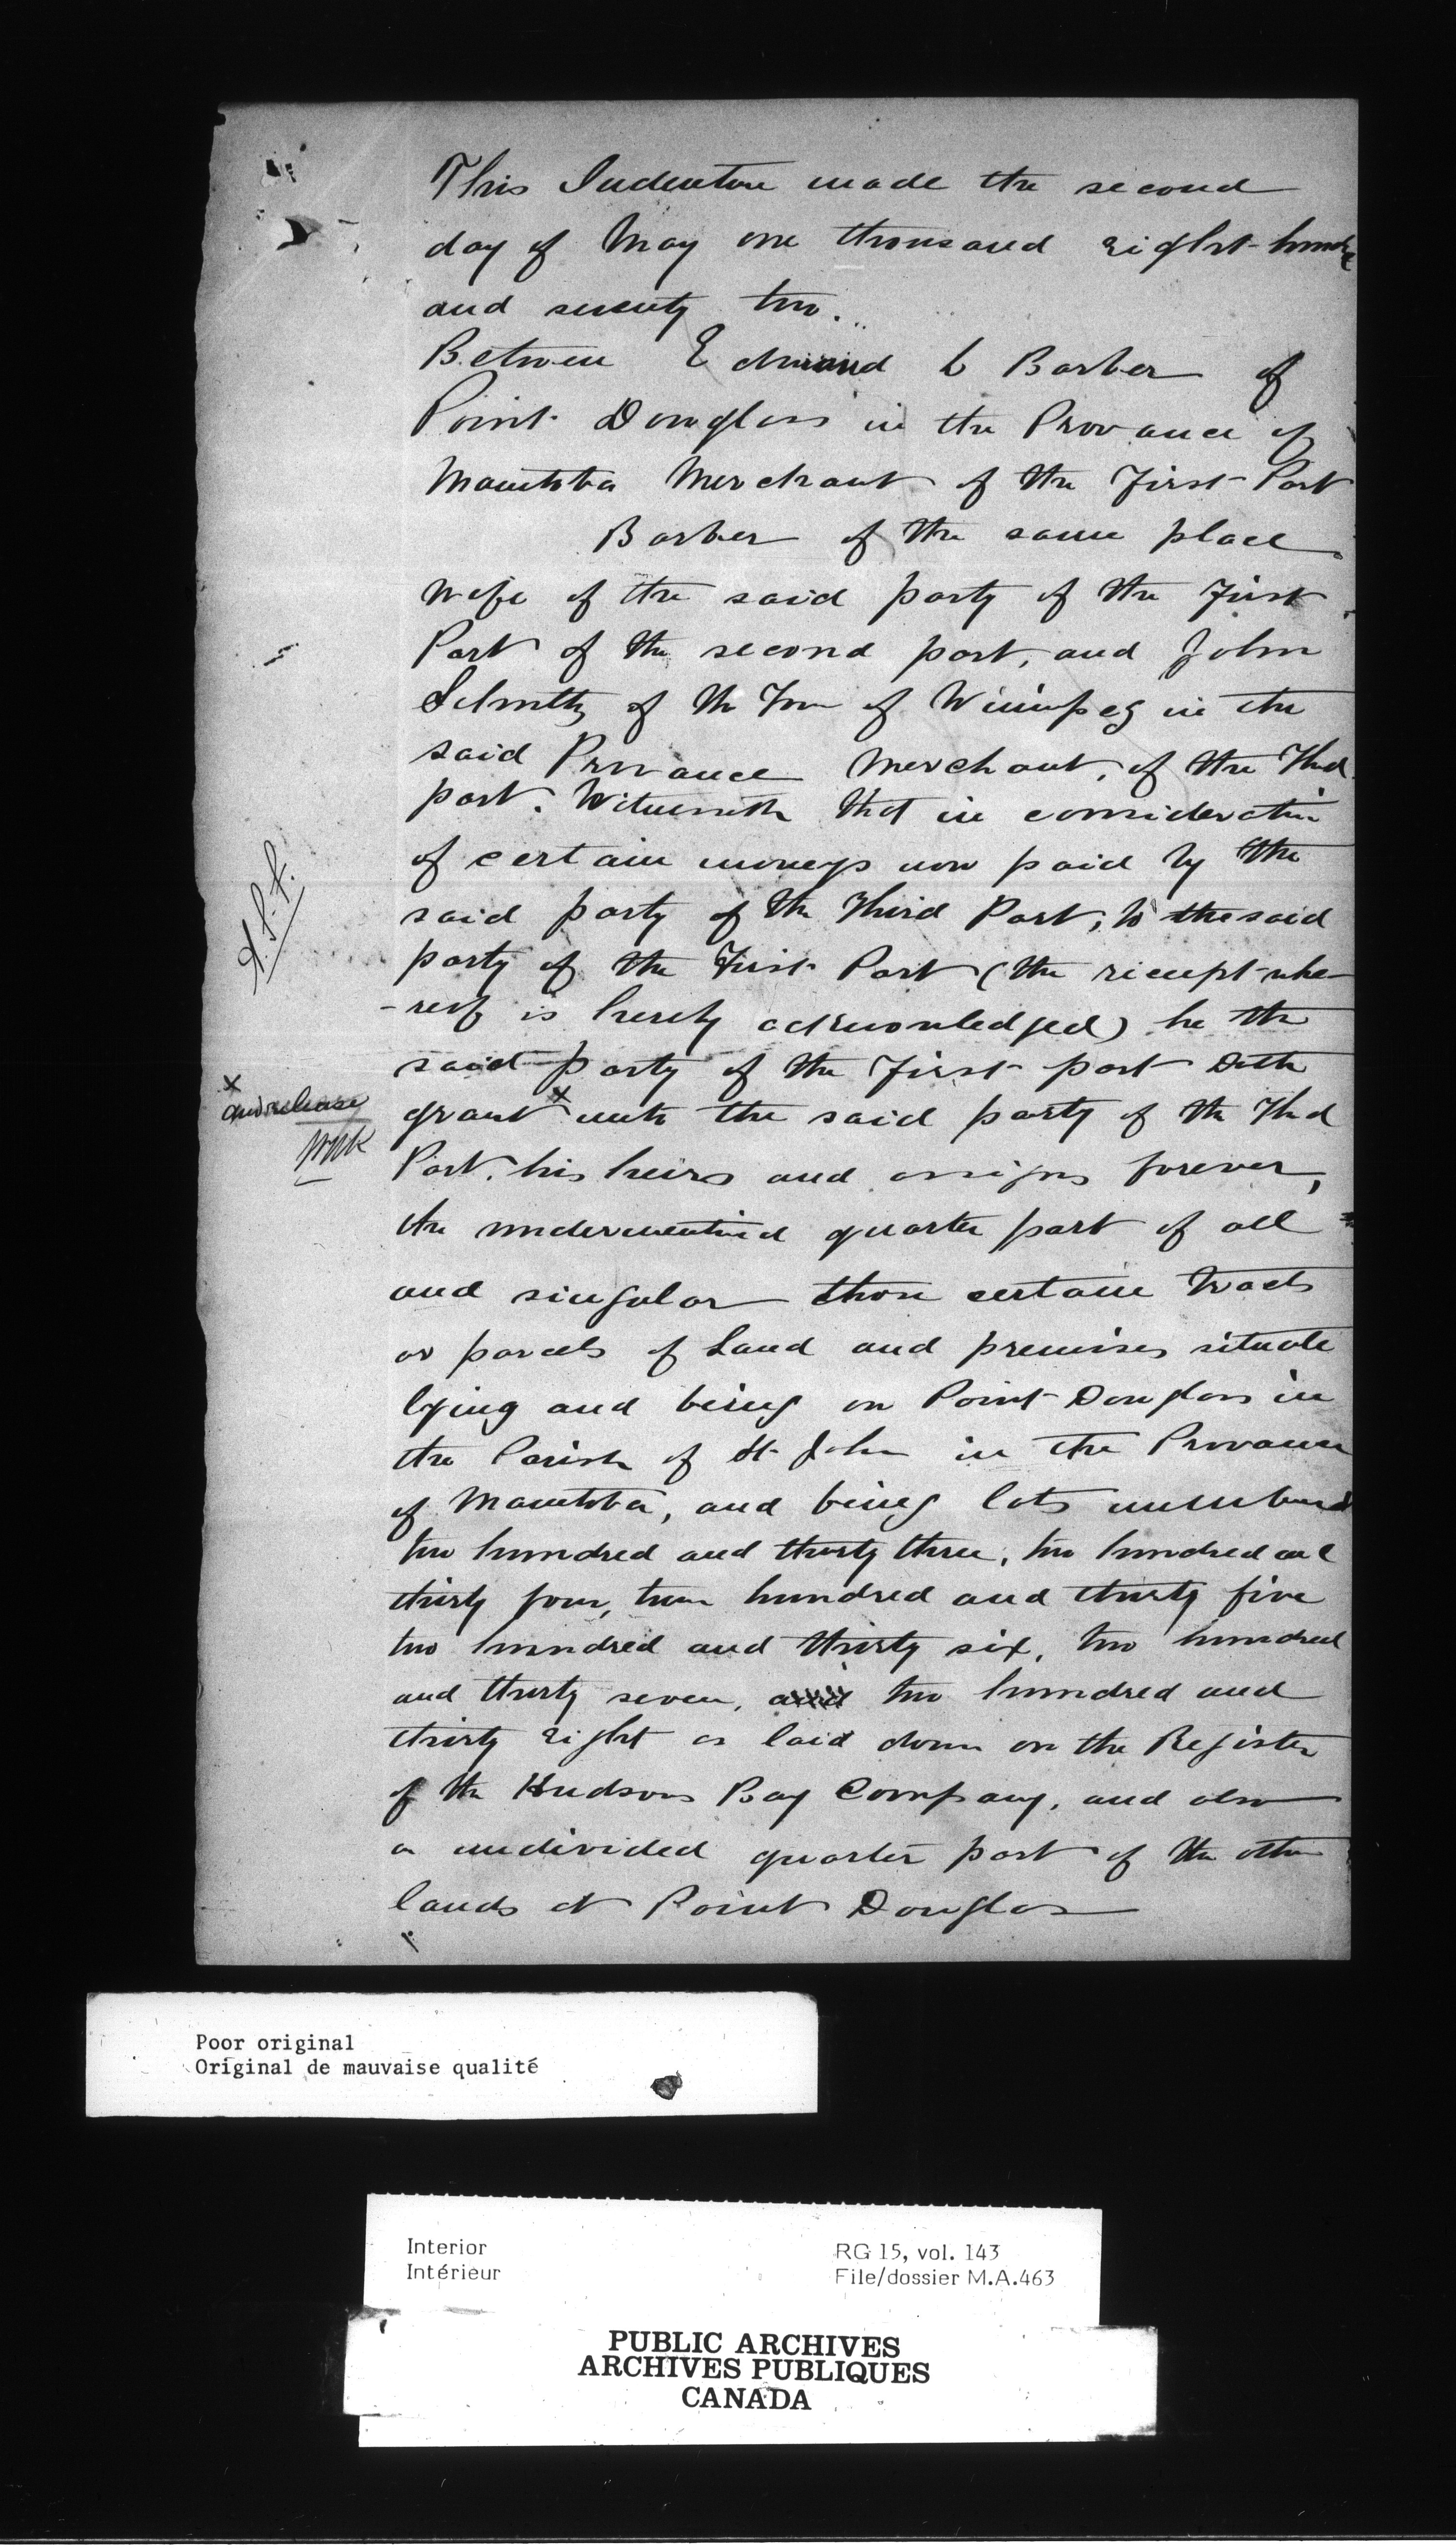 This Indenture made the second
day of May one thousand Eight hundred
and seventy two.
Between Edmund L Barber of
Point Douglass in the Provance of
Manitoba Merchant of the First Part
Barber of the same place
wife of the said party of the First
Part of the second part, and John
of the Town of Winnipeg in the
said Provance Merchant, of the Third
part. Witnesseth that in consideration
of certain moneys now paid by the
said party of the Third Part, to the said
party of the First Part (the riceipt whe-
-reof is hereby acknowledged) he the
said party of the First part Doth
x
and release
grant x unto the said party of the Third
Part, his heirs and assigns forever,
the undermentioned quarter part of all
and singular those certain tracts
or parcels of Land and premises situate
lying and being on Point Douglas in
the Parish of St John in the Provance
of Manitoba, and being lots numbered
two hundred and thirty three, two hundred and
thirty four, two hundred and thirty five
two hundred and thirty six, two hundred
and thirty seven, and two hundred and
thirty Eight as laid down on the Register
of the Hudsons Bay Company, and also
a undivided quarter part of the other
lands at Point Douglas
Poor original
Original de mauvaise qualité
Interior
Intérieur
RG 15, vol. 143
File/dossier M.A.463
PUBLIC ARCHIVES
ARCHIVES PUBLIQUES
CANADA